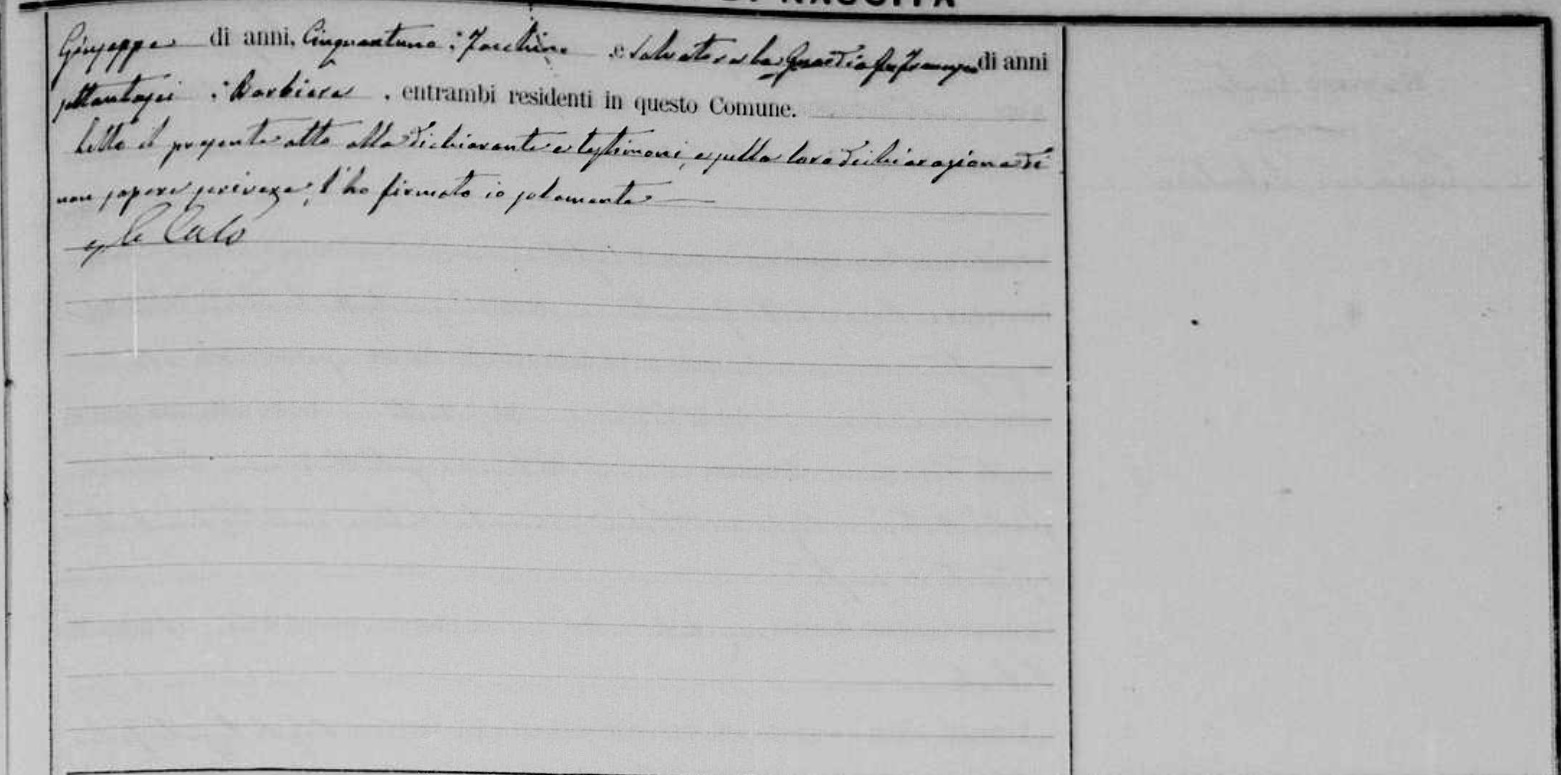 DI NASCITA
Giuseppe di anni, Cinquantuno ; Facchino e Salvatore La Guardia fu Francesco di anni
settantasei ; Barbiere , entrambi residenti in questo Comune.
Letto il presente atto alla dichiarante e testimoni, e sulla loro dichiarazione di
non sapere scrivere, l'ho firmato io solamente
Calò